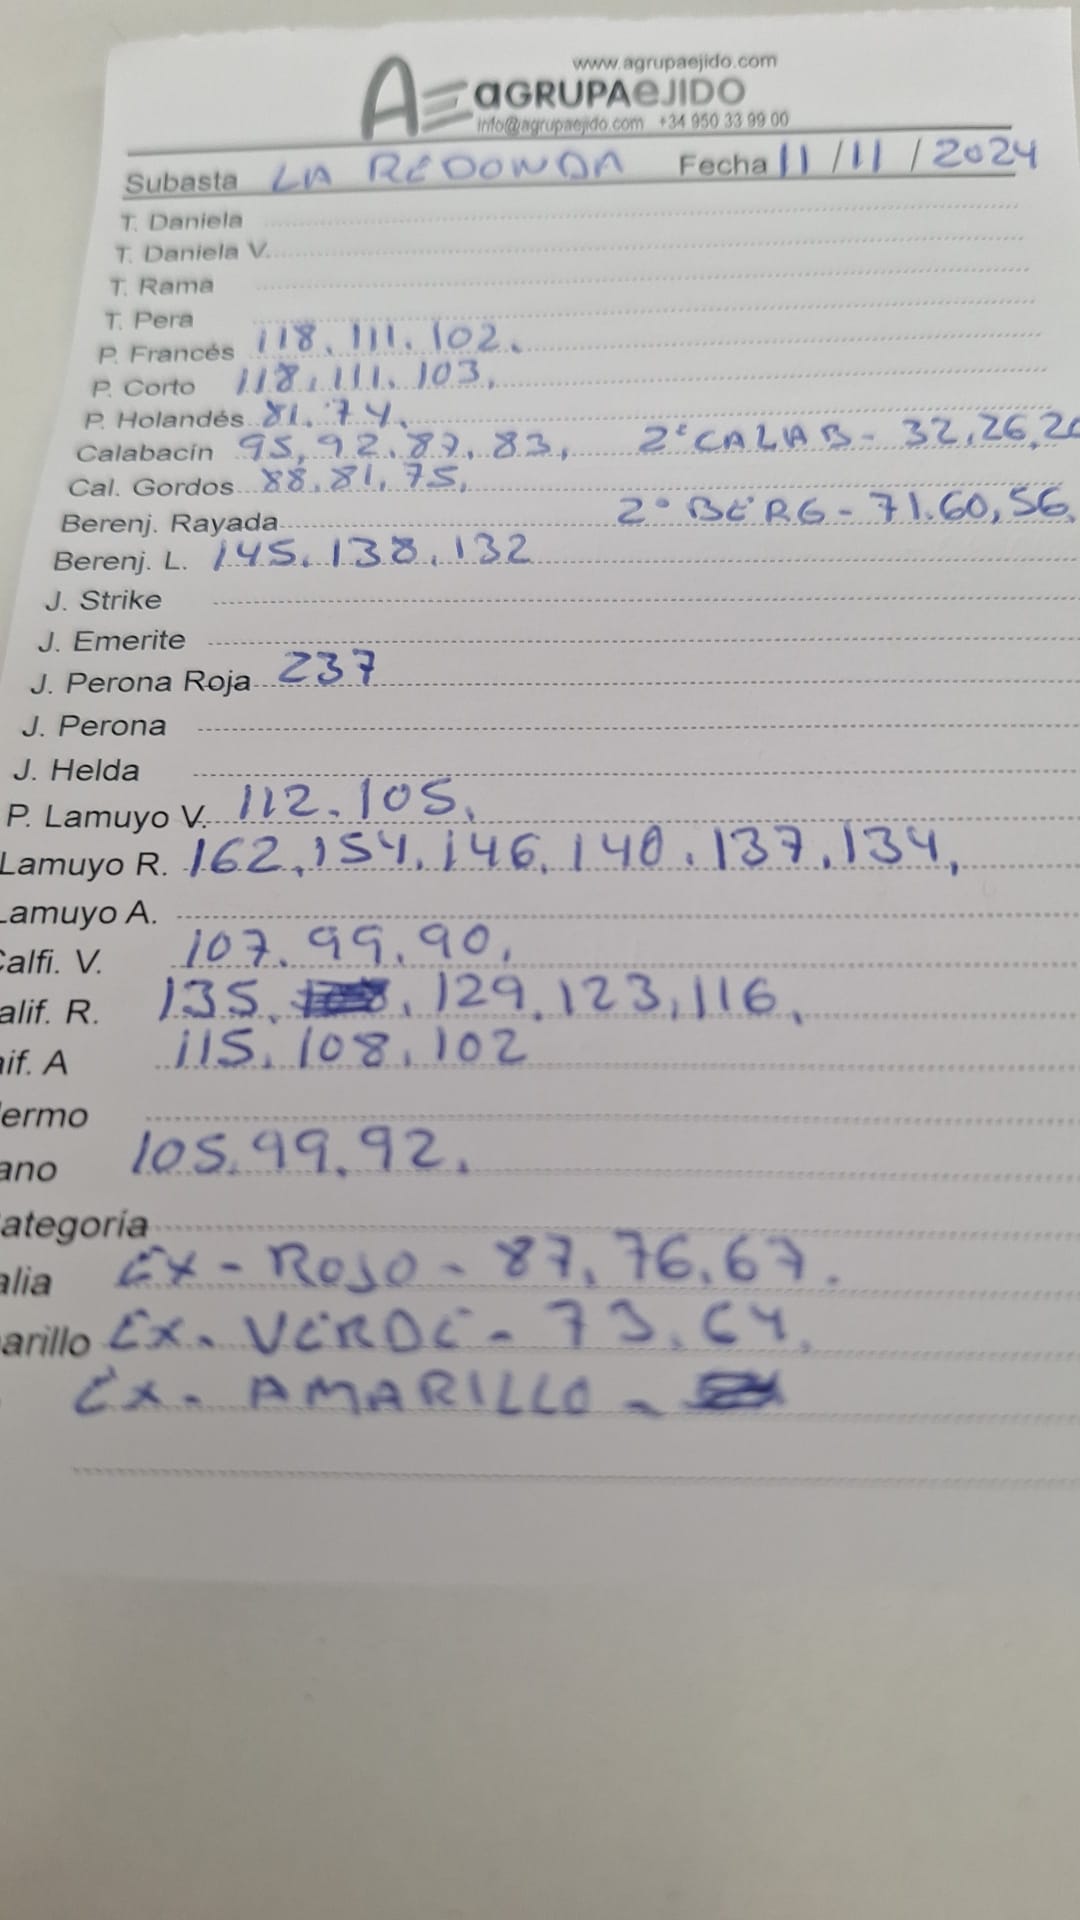 www.agrupaejido.com
AE aGRUPAeJIDO
info@agrupaejido.com +34 950 33 99 00
Subasta LA REDONDA Fecha 11/11/2024
T. Daniela
T. Daniela V.
T. Rama
T. Pera
P. Francés 118. 111. 102.
P. Corto 118. 111. 103.
P. Holandés 81. 74.
Calabacín 95, 92. 87. 83, 2ª CALAB - 32, 26, 20
Cal. Gordos 88. 81. 75.
Berenj. Rayada 2ª BERG - 71. 60, 56.
Berenj. L. 145. 138. 132
J. Strike
J. Emerite
J. Perona Roja 237
J. Perona
J. Helda
P. Lamuyo V. 112. 105.
Lamuyo R. 162, 154. 146. 140. 137. 134,
Lamuyo A.
Calfi. V. 107. 99. 90.
alif. R. 135. 129. 123, 116.
if. A 115. 108. 102
ermo
ano 105. 99. 92.
ategoría
alia EX - ROJO - 87. 76. 67.
arillo EX - VERDE - 73. 64.
EX - AMARILLO -